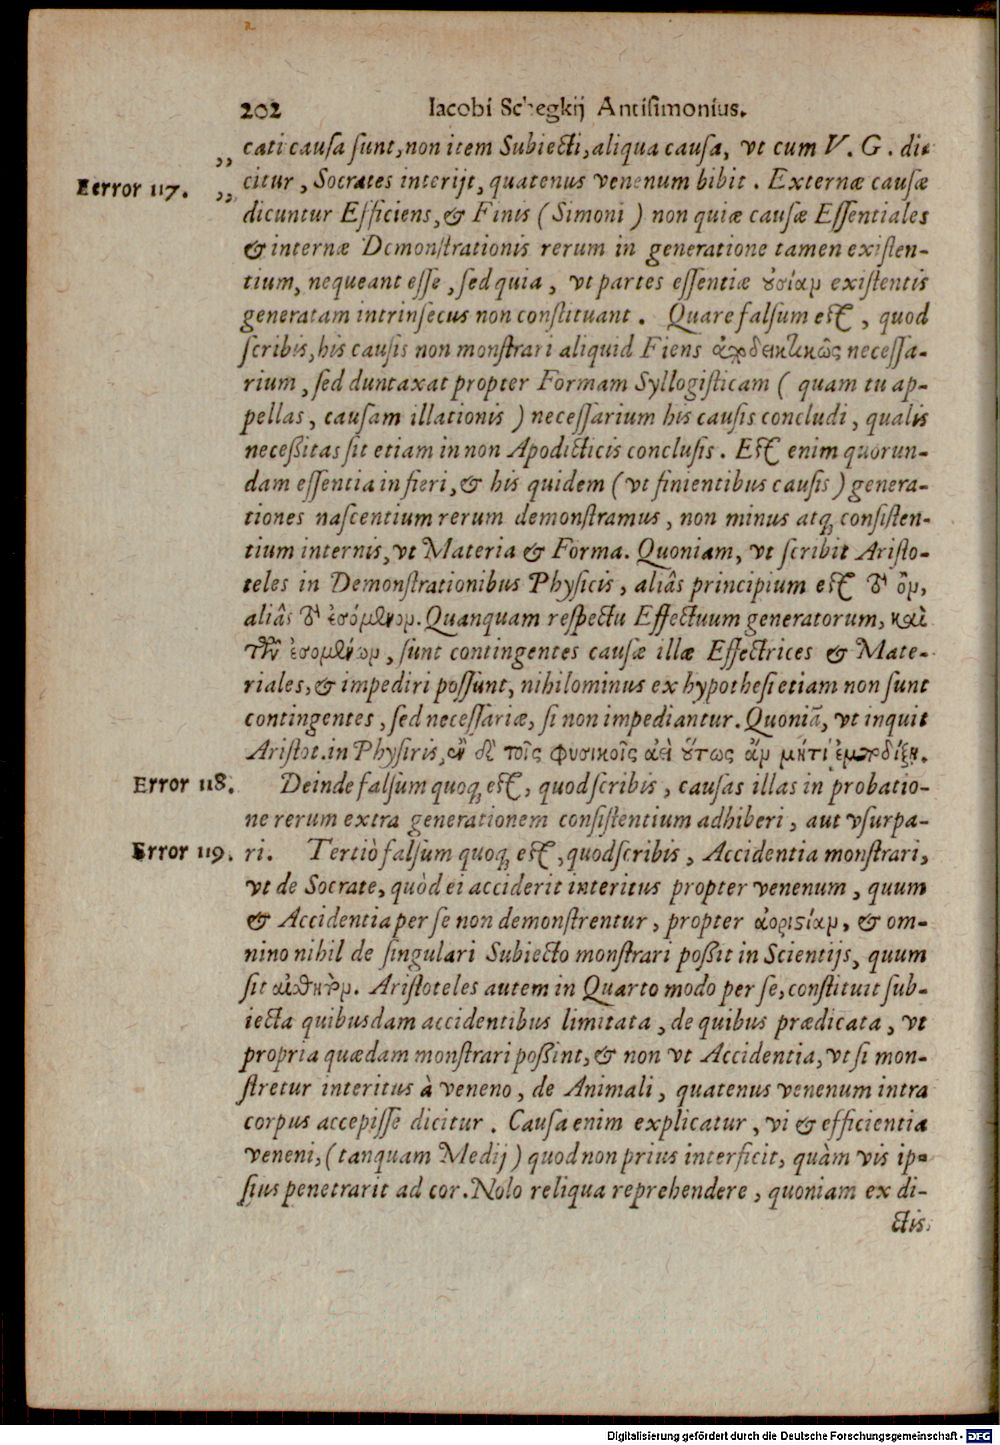 202 Iacobi Schegkij Antisimonius.
„ cati causa sunt, non item Subiecti, aliqua causa, vt cum V. G. di-
Eerror 117. „ citur, Socrates interijt, quatenus venenum bibit. Externæ causæ
dicuntur Efficiens, & Finis (Simoni) non quiæ causæ Essentiales
& internæ Demonstrationis rerum in generatione tamen existen-
tium, nequeant esse, sed quia, vt partes essentiæ ȣσίαν existentis
generatam intrinsecus non constituant. Quare falsum est, quod
scribis, his causis non monstrari aliquid Fiens ἀποδεικτικῶς necessa-
rium, sed duntaxat propter Formam Syllogisticam (quam tu ap-
pellas, causam illationis) necessarium his causis concludi, qualis
necessitas sit etiam in non Apodicticis conclusis. Est enim quorun-
dam essentia in fieri, & his quidem (vt finientibus causis) genera-
tiones nascentium rerum demonstramus, non minus atq; consisten-
tium internis, vt Materia & Forma. Quoniam, vt scribit Aristo-
teles in Demonstrationibus Physicis, aliâs principium est τὸ ὂν,
aliâs τὸ ἐσόμενον. Quanquam respectu Effectuum generatorum, καὶ
τῶν ἐσομένων, sunt contingentes causæ illæ Effectrices & Mate-
riales, & impediri possunt, nihilominus ex hypothesi etiam non sunt
contingentes, sed necessariæ, si non impediantur. Quoniã, vt inquit
Aristot. in Physiris, ἐν δὲ τοῖς φυσικοῖς ἀεὶ ȣ́τως ἂν μήτι ἐμποδίξη.
Error 118. Deinde falsum quoq; est, quod scribis, causas illas in probatio-
ne rerum extra generationem consistentium adhiberi, aut vsurpa-
Error 119. ri. Tertiò falsum quoq; est, quod scribis, Accidentia monstrari,
vt de Socrate, quòd ei acciderit interitus propter venenum, quum
& Accidentia per se non demonstrentur, propter ἀοριστίαν, & om-
nino nihil de singulari Subiecto monstrari possit in Scientijs, quum
sit αἰσθητὸν. Aristoteles autem in Quarto modo per se, constituit sub-
iecta quibusdam accidentibus limitata, de quibus prædicata, vt
propria quædam monstrari possint, & non vt Accidentia, vt si mon-
stretur interitus à veneno, de Animali, quatenus venenum intra
corpus accepisse dicitur. Causa enim explicatur, vi & efficientia
veneni, (tanquam Medij) quod non prius interficit, quàm vis ip-
sius penetrarit ad cor. Nolo reliqua reprehendere, quoniam ex di-
ctis
Digitalisierung gefördert durch die Deutsche Forschungsgemeinschaft - DFG